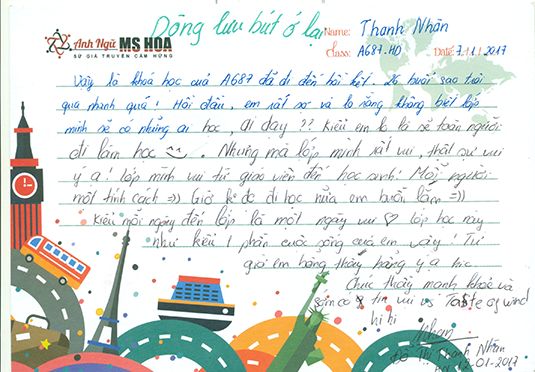 Dòng lưu bút ở lại
Anh Ngữ MS HOA
SỨ GIẢ TRUYỀN CẢM HỨNG
Name: Thanh Nhàn
Class: A687-HD Date: 7.1.1.2017
Vậy là khoá học của A687 đã đi đến hồi kết. 26 buổi sao trôi
qua nhanh quá! Hồi đầu, em rất sợ và lo rằng không biết lớp
mình sẽ có những ai học, ai dạy ?? Kiểu em lo là sẽ toàn người
đi làm học. Nhưng mà lớp mình rất vui, thật sự vui
ý ạ! Lớp mình vui từ giáo viên đến học sinh! Mỗi người
một tính cách =)) Giờ k đc đi học nữa em buồn lắm =))
Kiểu mỗi ngày đến lớp là một ngày vui ♡ lớp học này
như kiểu 1 phần cuộc sống của em vậy! Tự
giờ em bỗng thấy hẫng ý ạ hic
Chúc thầy mạnh khoẻ và
sớm có tin vui vs Taste of wind
hi hi
Nhàn
Đỗ Thị Thanh Nhàn
12-01-2017